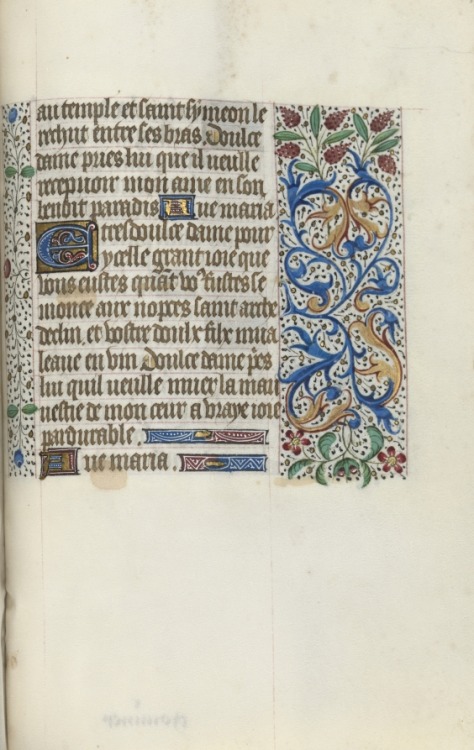 au temple et saint symeon le
rechut entre ses bras Doulce
dame pries lui que il ueulle
recepuoir mon ame en son
benoit paradis Aue maria
E tresdoulce dame pour
ycelle grant ioie que
vous eustes quãt vo9 fustes se
monee aux nopces saint arche
declin, et vostre doulx filx mua
leaue en vin Doulce dame p̃es
lui quil ueulle muer la mau
uestie de mon cœur a vraye ioie
pardurable
Aue maria